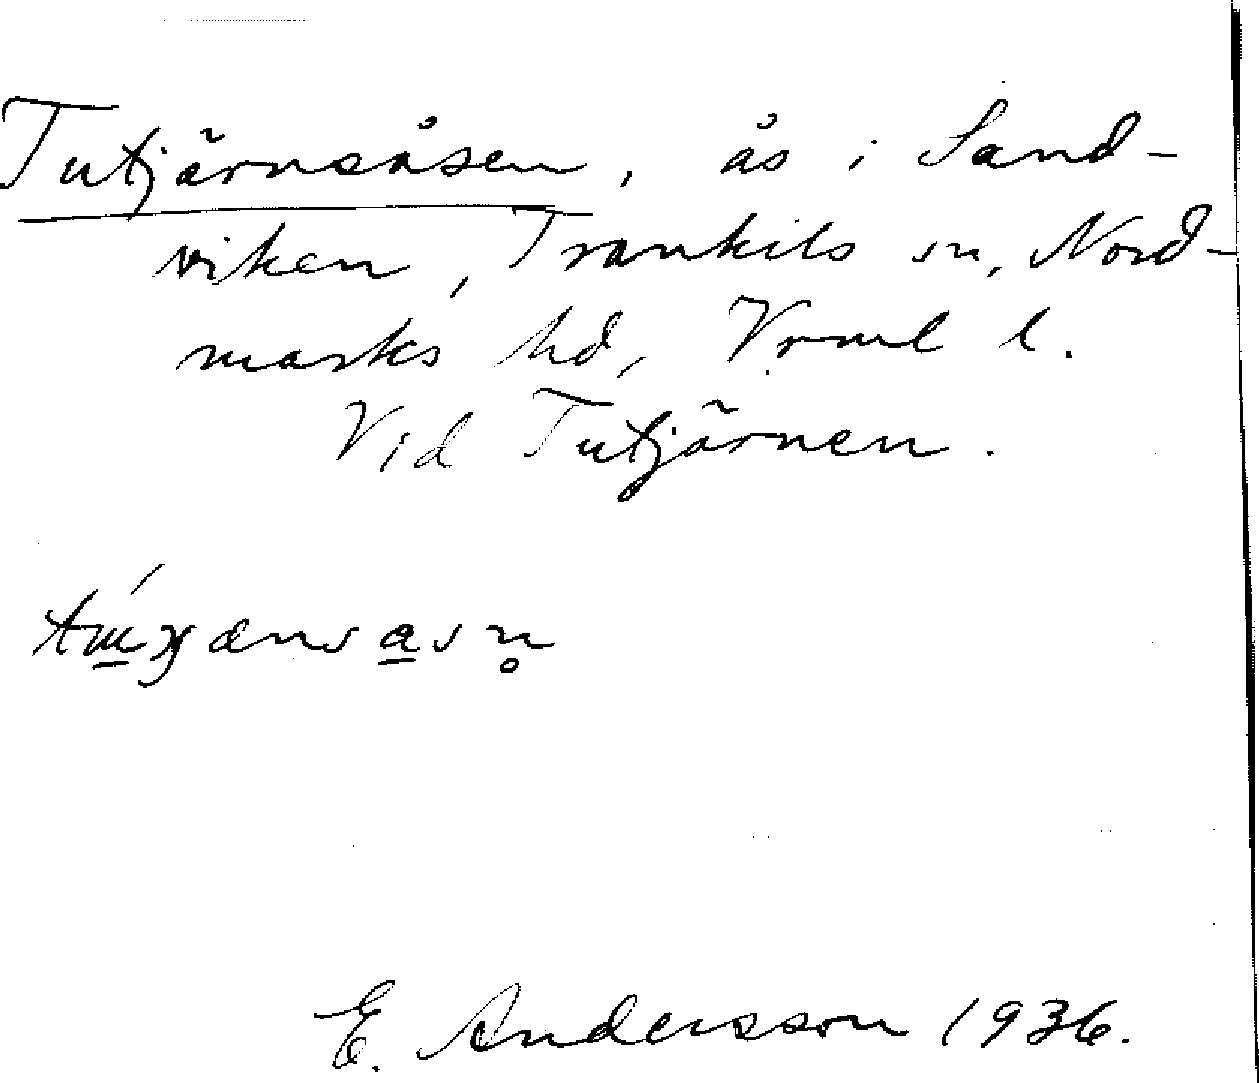 Tutjärnsåsen, ås i Sand-
viken, Trankils sn, Nord-
marks hd, Vrml l.
Vid Tutjärnen.
E. Andersson 1936.